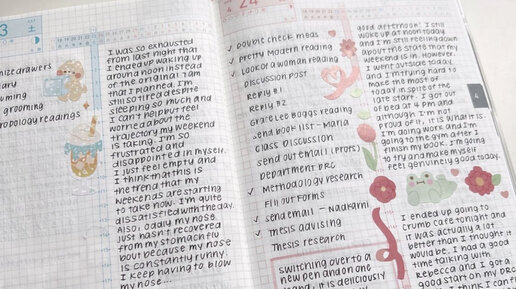 3 土
mize drawers
ary
uming
grooming
opology readings
I was so exhausted
from last night that
I ended up waking up
around noon instead
of the original 7 AM
that I planned. I'm
still so tired despite
sleeping so much and
I can't help but feel
worried about the
trajectory my weekend
is taking. I'm so
frustrated and
disappointed in myself.
I just feel empty and
I think that this is
the trend that my
weekends are starting
to take now. I'm quite
dissatisfied with the day.
Also, oddly my nose
just hasn't recovered
from my stomach flu
bout because my nose
is constantly runny.
I keep having to blow
my nose...
24
✓ Doubt check meds
✓ Pretty Modern reading
✓ Look of a woman reading
Discussion post
Reply #1
Reply #2
Grate Leg Boggs reading
Send book list - Maria
Class Discussion
send out email (profs)
Department DRC
✓ Methodology research
Fill out forms
✓ send email - Nadkarni
✓ Thesis advising
Thesis research
switching over to a
new pen and on one
hand, it is deliciously
good afternoon! I still
woke up at noon today
and I'm still feeling down
about the state that my
weekend is in. However,
I went outside today,
and I'm trying hard to
make the most of
today in spite of the
late start. I got out
of bed at 4 PM and
although I'm not
proud of it, it is what it is.
I'm doing work and I'm
going to the gym after I
finish my book. I'm going
to try and make myself
feel genuinely good today.
I ended up going to
crumb cafe tonight and
it was actually a lot
better than I thought it
would be; I had a good
time talking with
Rebecca and I got a
good start on my
4